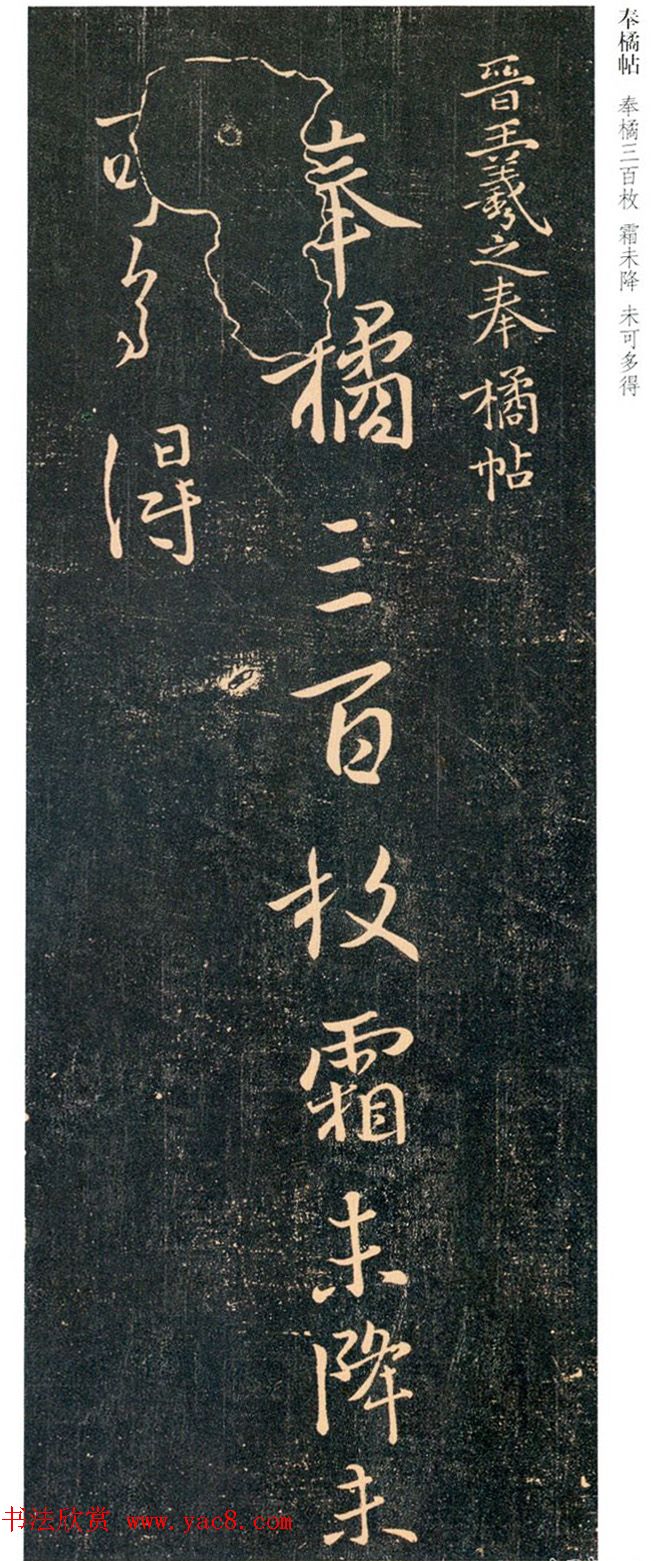 奉橘帖 奉橘三百枚 霜未降 未可多得
晉王羲之奉橘帖
奉橘三百枚霜未降未
可多得
书法欣赏 www.yac8.com